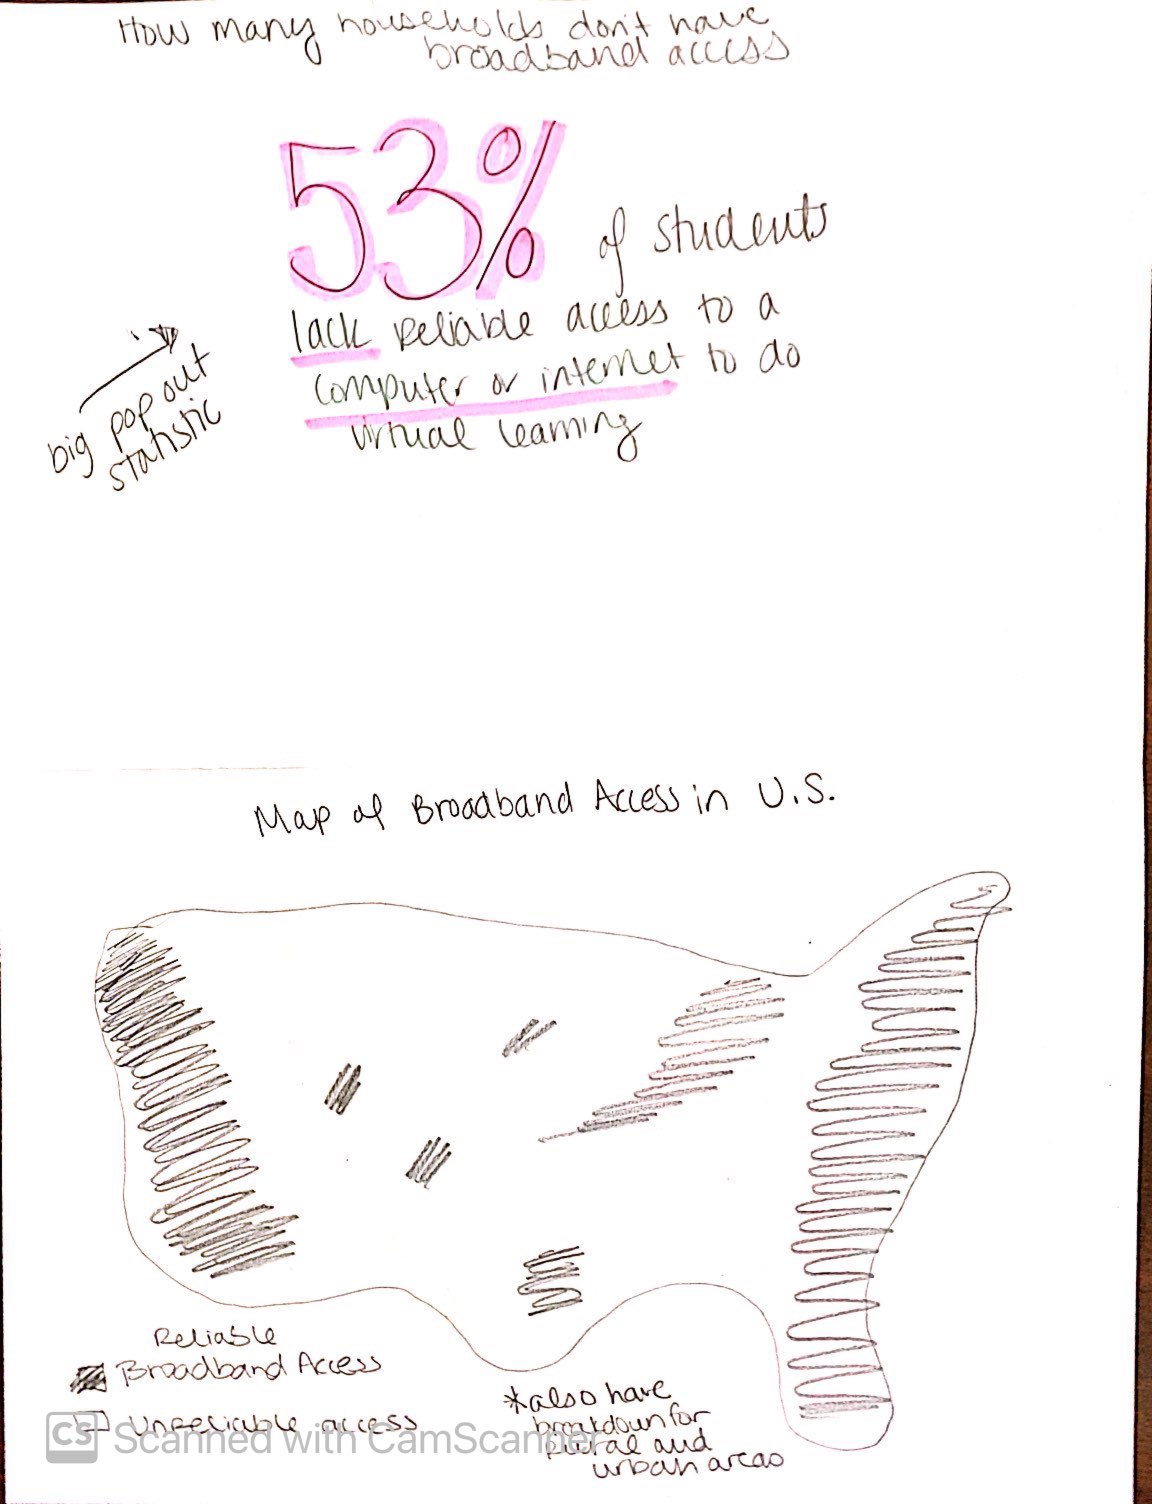 How many households don't have
broadband access
53% of students
lack reliable access to a
computer or internet to do
virtual learning
big pop out
statistic
Map of Broadband Access in U.S.
Reliable
Broadband Access
Unreliable access
*also have
breakdown for
rural and
urban areas
CS Scanned with CamScanner